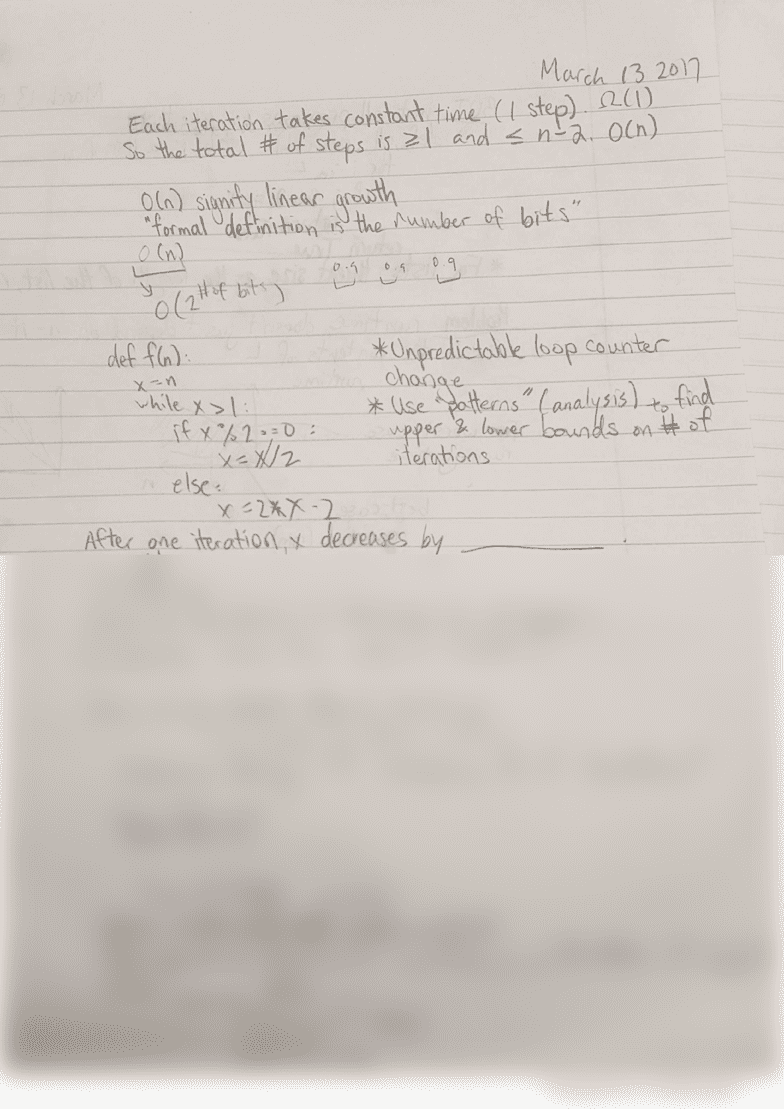 March 13 2017
Each iteration takes constant time (1 step). Ω(1)
So the total # of steps is ≥1 and ≤ n-2. O(n)
O(n) signify linear growth
"formal" definition is the number of bits"
O(n)
O(2^# of bits)
0-9 0-9 0-9
def f(n):
x=n
while x>1:
if x%2==0:
x=x//2
else:
x=2*x-2
*Unpredictable loop counter
change
* Use "patterns" (analysis) to find
upper & lower bounds on # of
iterations
After one iteration, x decreases by ________.